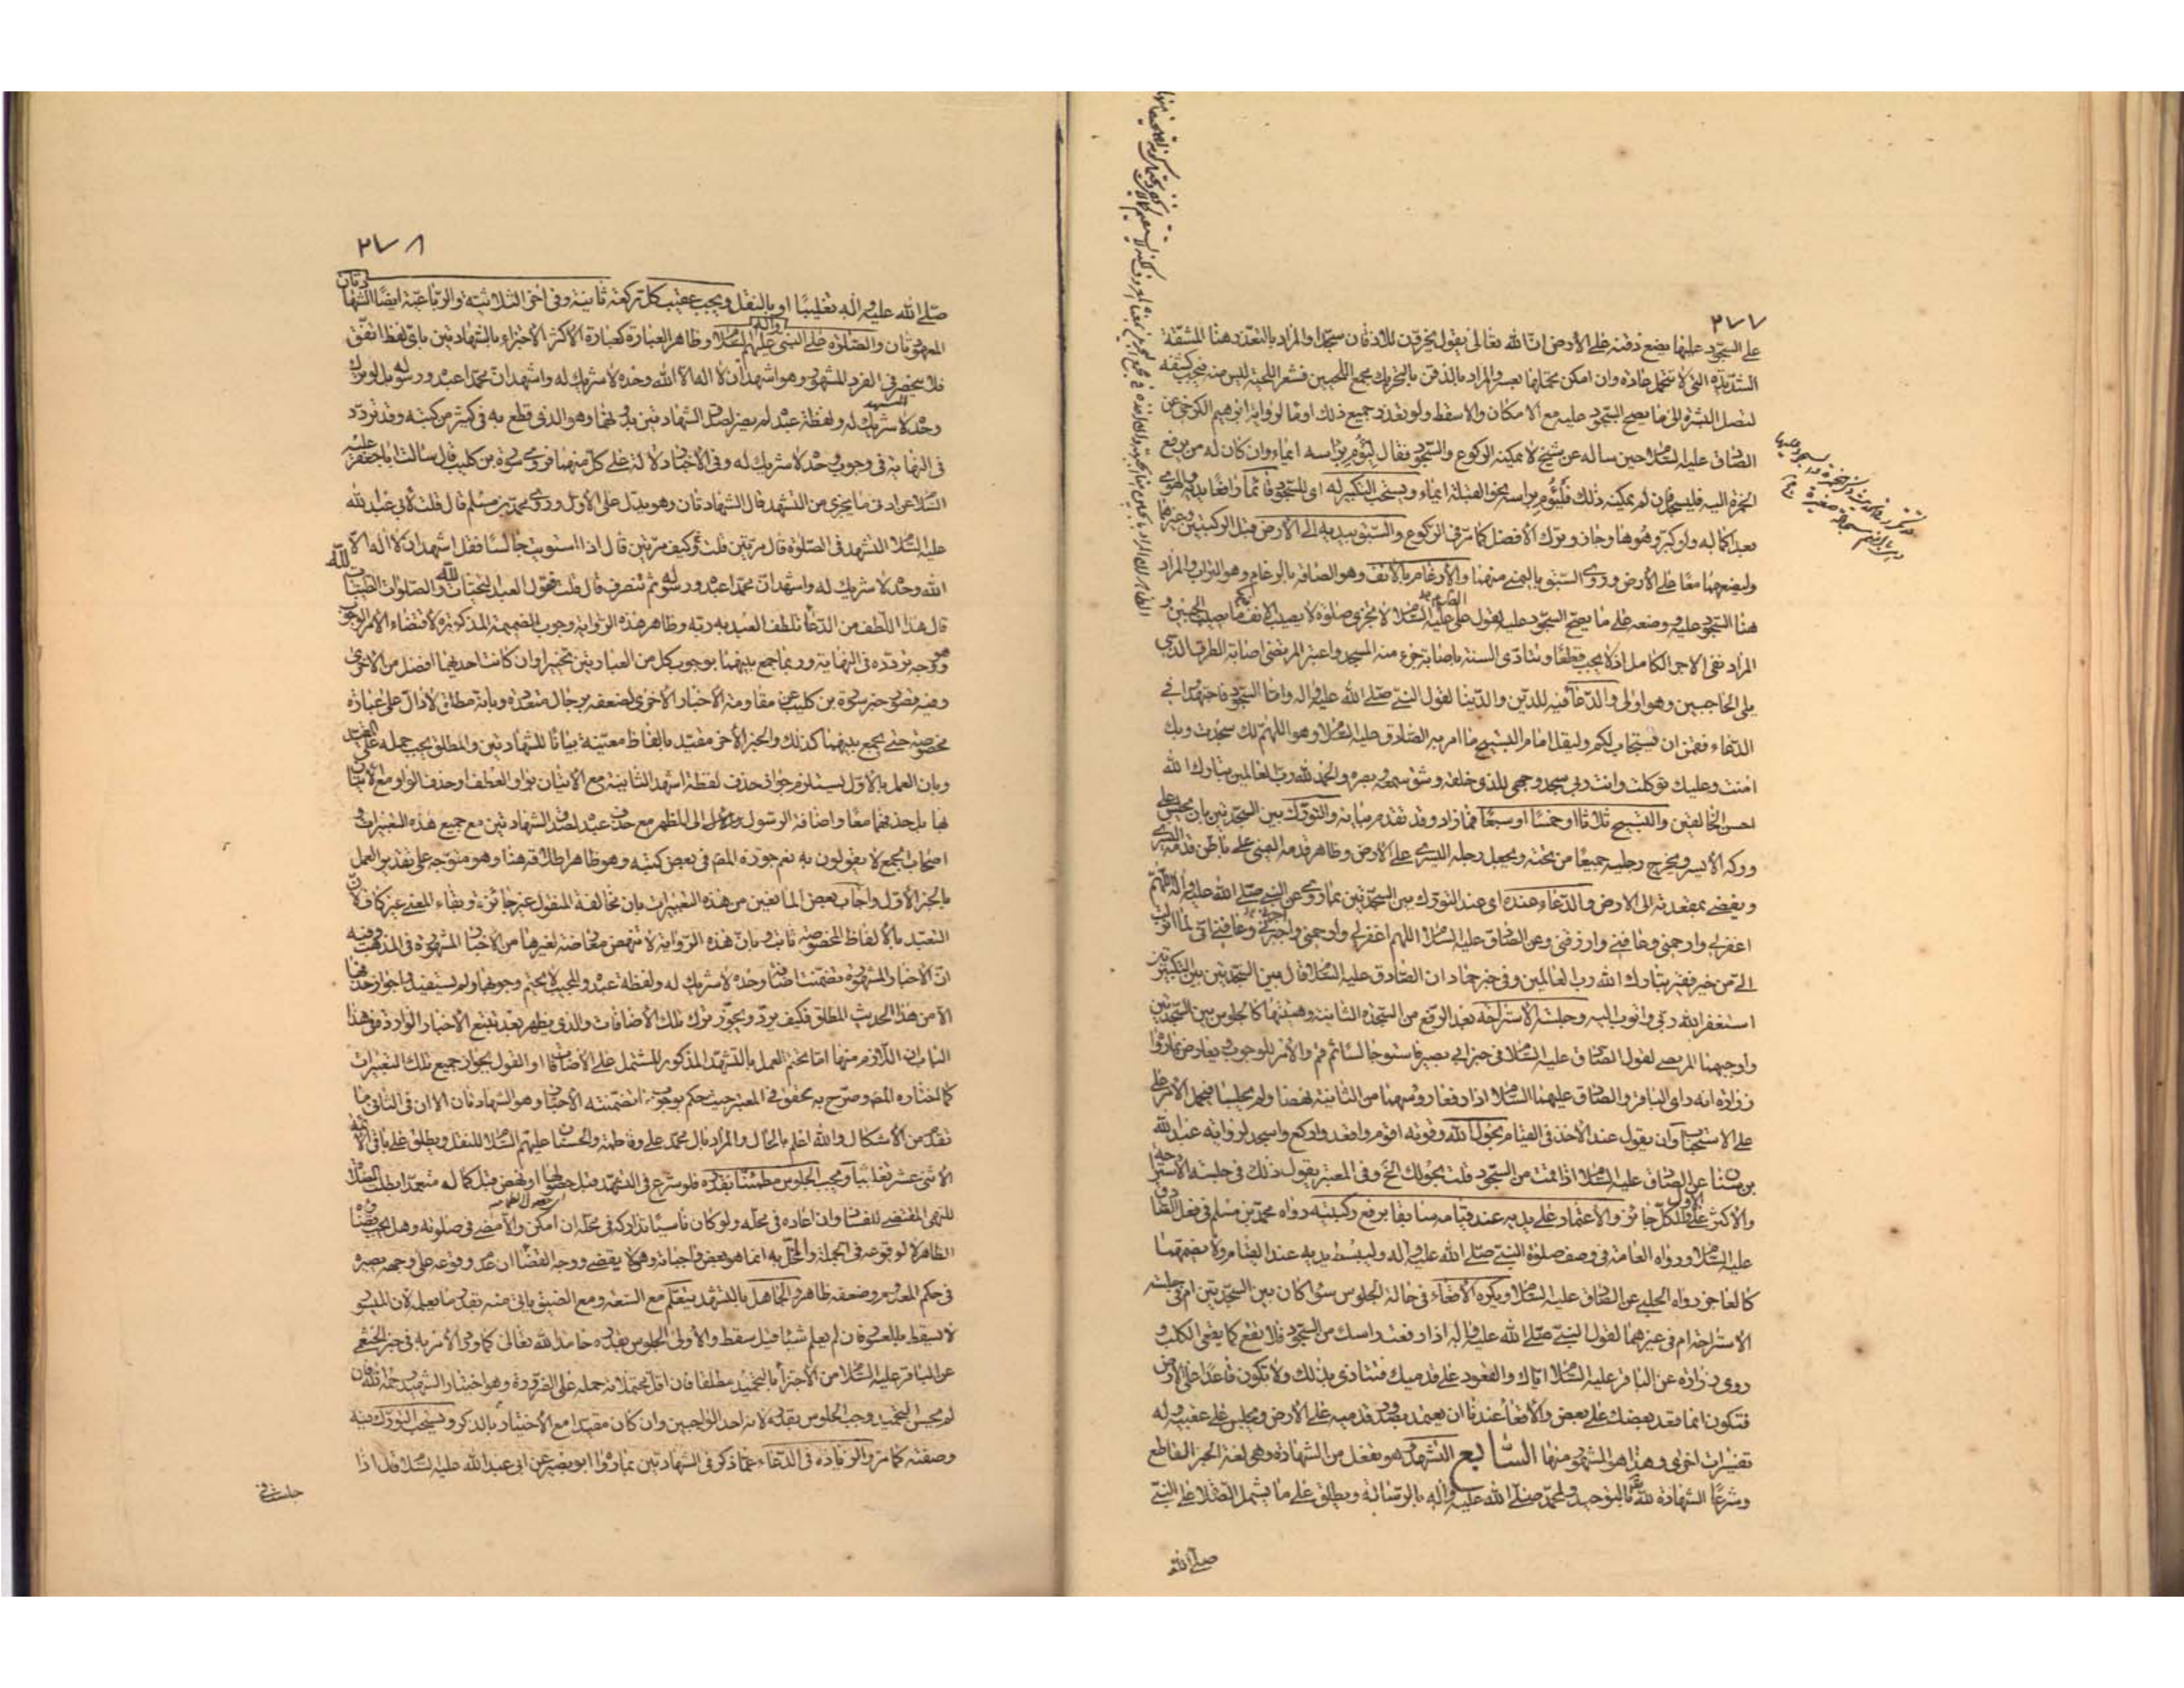 ٢٧٧
على السجود عليها يضع ذقنه على الأرض انّ الله تعالى يقول يخرّون للاذقان سجّدا والمراد بالتعذر هنا المشقة
الشديدة التى لا تتحمل عادة وان امكن تحملها بعسر والمراد بالذقن بالتحريك مجمع اللحيين فشعر اللحية ليس منه فيجب كشفه
لتصل البشرة الى ما يصح السجود عليه مع الامكان والا سقط ولو تعذر جميع ذلك اومأ لرواية ابرهيم الكرخى عن
الصادق عليه السّلام حين ساله عن شيخ لا يمكنه الركوع والسجود فقال ليؤم براسه ايماء وان كان له من يرفع
الخمرة اليه فليسجد فان لم يمكنه ذلك فليؤم براسه نحو القبلة ايماء ويستحب التكبير له اى للسجود قائماً رافعا يديه والهوى
بعد اكماله ولو كبّر وهو هاو جاز وترك الأفضل كما مرّ فى الركوع والسّبق بيديه إلى الأرض قبل الركبتين وخيرها
وليضعهما معًا على الأرض وروى السّبق باليمنى منهما والأرغام بالأنف وهو الصاقه بالرغام وهو التراب والمراد
هنا السجود عليه ووضعه على ما يصح السجود عليه لقول على عليه السّلام لا تجزى صلوة لا يصيب الانف ما يصيب الجبين و
المراد نفى الاجزاء الكامل اذ لا يجب قطعًا وتتأدّى السنة باصابة جزء منه المسجد واعتبر المرتضى اصابة الطرف الذى
يلى الحاجبين وهو اولى والدّعأ فيه للدّين والدّنيا لقول النبىّ صلّى الله عليه واله وامّا السجود فاجتهدوا فى
الدّعاء فقمن ان يستجاب لكم وليقل امام التسبيح ما امر به الصّادق عليه السّلام وهو اللهمّ لك سجدت وبك
امنت وعليك توكلت وانت ربى سجد وجهى للذى خلقه وشق سمعه وبصره والحمد لله ربّ العالمين تبارك الله
احسن الخالقين والتسبيح ثلاثا او خمسًا او سبعًا فما زاد وقد تقدم بيانه والتورّك بين السجدتين بان يجلس على
وركه الايسر ويخرج رجليه جميعًا من تحته ويجعل رجله اليسرى على الارض وظاهر قدمه اليمنى على باطن قدمه اليسرى
ويفضى بمقعدته إلى الارض والدّعاء عنده اى عند التورّك بين السجدتين بما روى عن النبى صلّى الله عليه واله اللّهمّ
اغفر لى وارحمنى وعافنى وارزقنى وعن الصّادق عليه السّلام اللهم اغفر لى وارحمنى واجبرنى وعافنى انى لما انزلت
الىّ من خير فقير تبارك الله رب العالمين وفى خبر حماد ان الصّادق عليه السّلام قال بين السّجدتين بين التكبيرتين
استغفر الله ربى واتوب اليه وجلسة الاستراحة بعد الرفع من السّجدة الثانية وهيئتها كالجلوس بين السّجدتين
واوجبها المرتضى لقول الصّادق عليه السّلام فى خبر ابى بصير فاستو جالسًا ثم قم والأمر للوجوب ويعارض بما روا
زرارة انه راى الباقر والصّادق عليهما السّلام اذا رفعا رؤسهما من الثانية نهضا ولم يجلسا فيحمل الأمر على
على الاستحباب وان يقول عند الاخذ فى القيام بحول الله وقوته اقوم واقعد واركع واسجد لرواية عبد الله
بن سنان عن الصادق عليه السّلام اذا قمت من السجود قلت بحولك الخ وفى المعتبر يقول ذلك فى جلسة الاستراحة
والأكثر على الأول والكل جائز والأعتماد على يديه عند قيامه سابقا برفع ركبتيه رواه محمد بن مسلم فى فعل الصّادق
عليه السّلام ورواه العامّة فى وصف صلوة النبىّ صلّى الله عليه واله وليبسط يديه عند القيام ولا يضمهما
كالعاجز رواه الحلبى عن الصّادق عليه السّلام ويكره الأقعاء فى حالة الجلوس سوا كان بين السجدتين ام فى جلسة
الاستراحة ام فى غيرهما لقول النبىّ صلّى الله عليه واله اذا رفعت راسك من السّجود فلا تقع كما يقعى الكلب و
روى زرارة عن الباقر عليه السّلام اياك والقعود على قدميك فتتأذى بذلك ولا تكون قاعدًا على الارض
فتكون انما قعد بعضك على بعض والأقعأ عندنا ان يعتمد بصدور قدميه على الأرض ويجلس على عقبيه وله
تفسيرات اخرى وهذا هو المشهور منها السّابع التشهد وهو تفعل من الشهادة وهى لغة الخبر القاطع
وشرعًا الشهادة لله تعالى بالتوحيد ولمحمد صلّى الله عليه واله بالرّسالة ويطلق على ما يشمل الصّلاة على النبىّ
صلى الله
٢٧٨
صلّى الله عليه واله تغليبًا او بالنقل ويجب عقيب كل ركعة ثانية وفى اخر الثلاثية والرباعيّة ايضًا الشهادتان
المعهودتان والصّلوة على النبى وآله عليهم السّلام وظاهر العبارة كعبارة الاكثر الأجتزاء بالشهادتين باى لفظ اتفق
فلا ينحصر فى الفرد المشهور وهو اشهد ان لا اله الا الله وحده لا شريك له واشهد ان محمّدا عبده ورسوله بل لو ترك
وحده لا شريك له ولفظة عبده لم يضر لصدق الشهادتين بدونهما وهو الذى قطع به فى كثير من كتبه وقد تردّد
فى النهاية فى وجوب وحده لا شريك له وفى الأخبار دلالة على كلّ منهما فروى سورة بن كليب قال سالت ابا جعفر عليه
السّلام عن ادنى ما يجزى من التشهد قال الشهادتان وهو يدل على الأول وروى محمّد بن مسلم قال قلت لأبى عبد الله
عليه السّلام التشهد فى الصّلوة قال مرّتين قلت وكيف مرّتين قال اذا استويت جالسًا فقل اشهد ان لا اله الا
الله وحده لا شريك له واشهد انّ محمدا عبده ورسوله ثم تنصرف قال قلت قول العبد التحيّات لله والصلوات الطيبات لله
قال هذا اللّطف من الدعأ تلطف العبد به ربّه وظاهر هذه الرّواية وجوب الضميمة المذكورة لأقتضاء الأمر الوجوب
وهو وجه تردّده فى النهاية وربما جمع بينهما بوجوب كل من العبارتين تخييرا وان كانت احديهما افضل من الاخرى
وفيه قصور خبر سورة بن كليب عن مقاومة الأخبار الأخرى لضعفه برجال متعددة وبانه مطلق لا دالّ على عبارة
مخصوصة حتى يجمع بينهما كذلك والخبر الأخر مقيّد بالفاظ معيّنة بيانا للشهادتين والمطلق يجب حمله على المقيد
وبان العمل بالأوّل يستلزم جواز حذف لفظة اشهد الثانية مع الاتيان بواو العطف وحذف الواو مع الاتيان
بها بل حذفهما معًا واضافة الرسول الى المظهر مع حذف عبده لصدق الشهادتين مع جميع هذه التغييرات و
اصحاب الجمع لا يقولون به نعم جوزه المص فى بعض كتبه وهو ظاهر اطلاقه هنا وهو متوجه على تقدير العمل
بالخبر الأوّل واجاب بعض المانعين من هذه التغييرات بان مخالفة المنقول غير جائزة وبقاء المعنى غير كاف لانّ
التعبّد بالألفاظ المخصوصة ثابت وبانّ هذه الرّواية لا تنهض معارضة لغيرها من الأخبار المشهورة فى المذهب وفيه
انّ الأخبار المشهورة تضمّنت اضافة وحده لا شريك له ولفظة عبده والمجيب لا يحتم وجوبها ولم يستفيدوا جواز حذفها
الّا من هذا الحديث المطلق فكيف يردّ ويجوّز ترك تلك الأضافات والذى يظهر بعد تتبع الأخبار الواردة فى هذا
الباب ان اللّازم منها امّا تحتم العمل بالتشهد المذكور المشتمل على الأضافات او القول بجواز جميع تلك التغييرات
كما اختاره المص وصرّح به المحقق فى المعتبر حيث حكم بوجوب ما تضمّنته الأخبار وهو الشهادتان الا ان فى الثانى ما
تقدّم من الأشكال والله اعلم بالحال والمراد بال محمّد على وفاطمة والحسنان عليهم السّلام للنقل ويطلق على باقى الأئمة
الأثنى عشر تغليبا ويجب الجلوس مطمئنًّا بقدره فلو شرع فى التشهد قبل حصولهما او نهض قبل كماله متعمّدا بطلت الصّلاة
للنهى المقتضى للفساد وان اعاده فى محلّه ولو كان ناسيًا تداركه فى محلّه ان امكن والأمضى فى صلوته وهل يجب قضاؤه
الظاهر لا لوقوعه فى الجملة والمخلّ به انما هو بعض واجباته وهو لا يقضى ووجه القضأ ان عدم وقوعه على وجهه يصيره
فى حكم المعدوم وضعفه ظاهر والجاهل بالتشهد يتعلّم مع السّعة ومع الضيق ياتى منه بقدر ما يعلمه لان الميسور
لا يسقط بالمعسور فان لم يعلم شيئا قيل سقط والأولى الجلوس بقدره حامدا لله تعالى كما روى الأمر به فى خبر الخثعمى
عن الباقر عليه السّلام من الأجتزأ بالتحميد مطلقا فان اقل محتملاته حمله على الضرورة وهو اختيار الشهيد رحمه الله فان
لم يحسن التحميد وجب الجلوس بقدره لانه احد الواجبين وان كان مقيدا مع الأختيار بالذكر ويستحب التورّك فيه
وصفته كما مرّ والزيادة فى الدّعاء عمّا ذكر فى الشهادتين بما روا ابو بصير عن ابى عبد الله عليه السّلام قال اذا
جلست فى